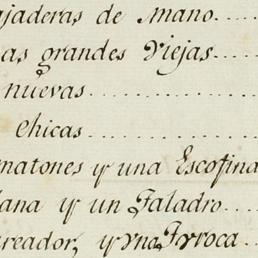 ajaderas de mano....
as grandes Viejas....
nuevas...............
Chicas...............
matones y una Escofina
lana y un Taladro....
reador, y una Broca...